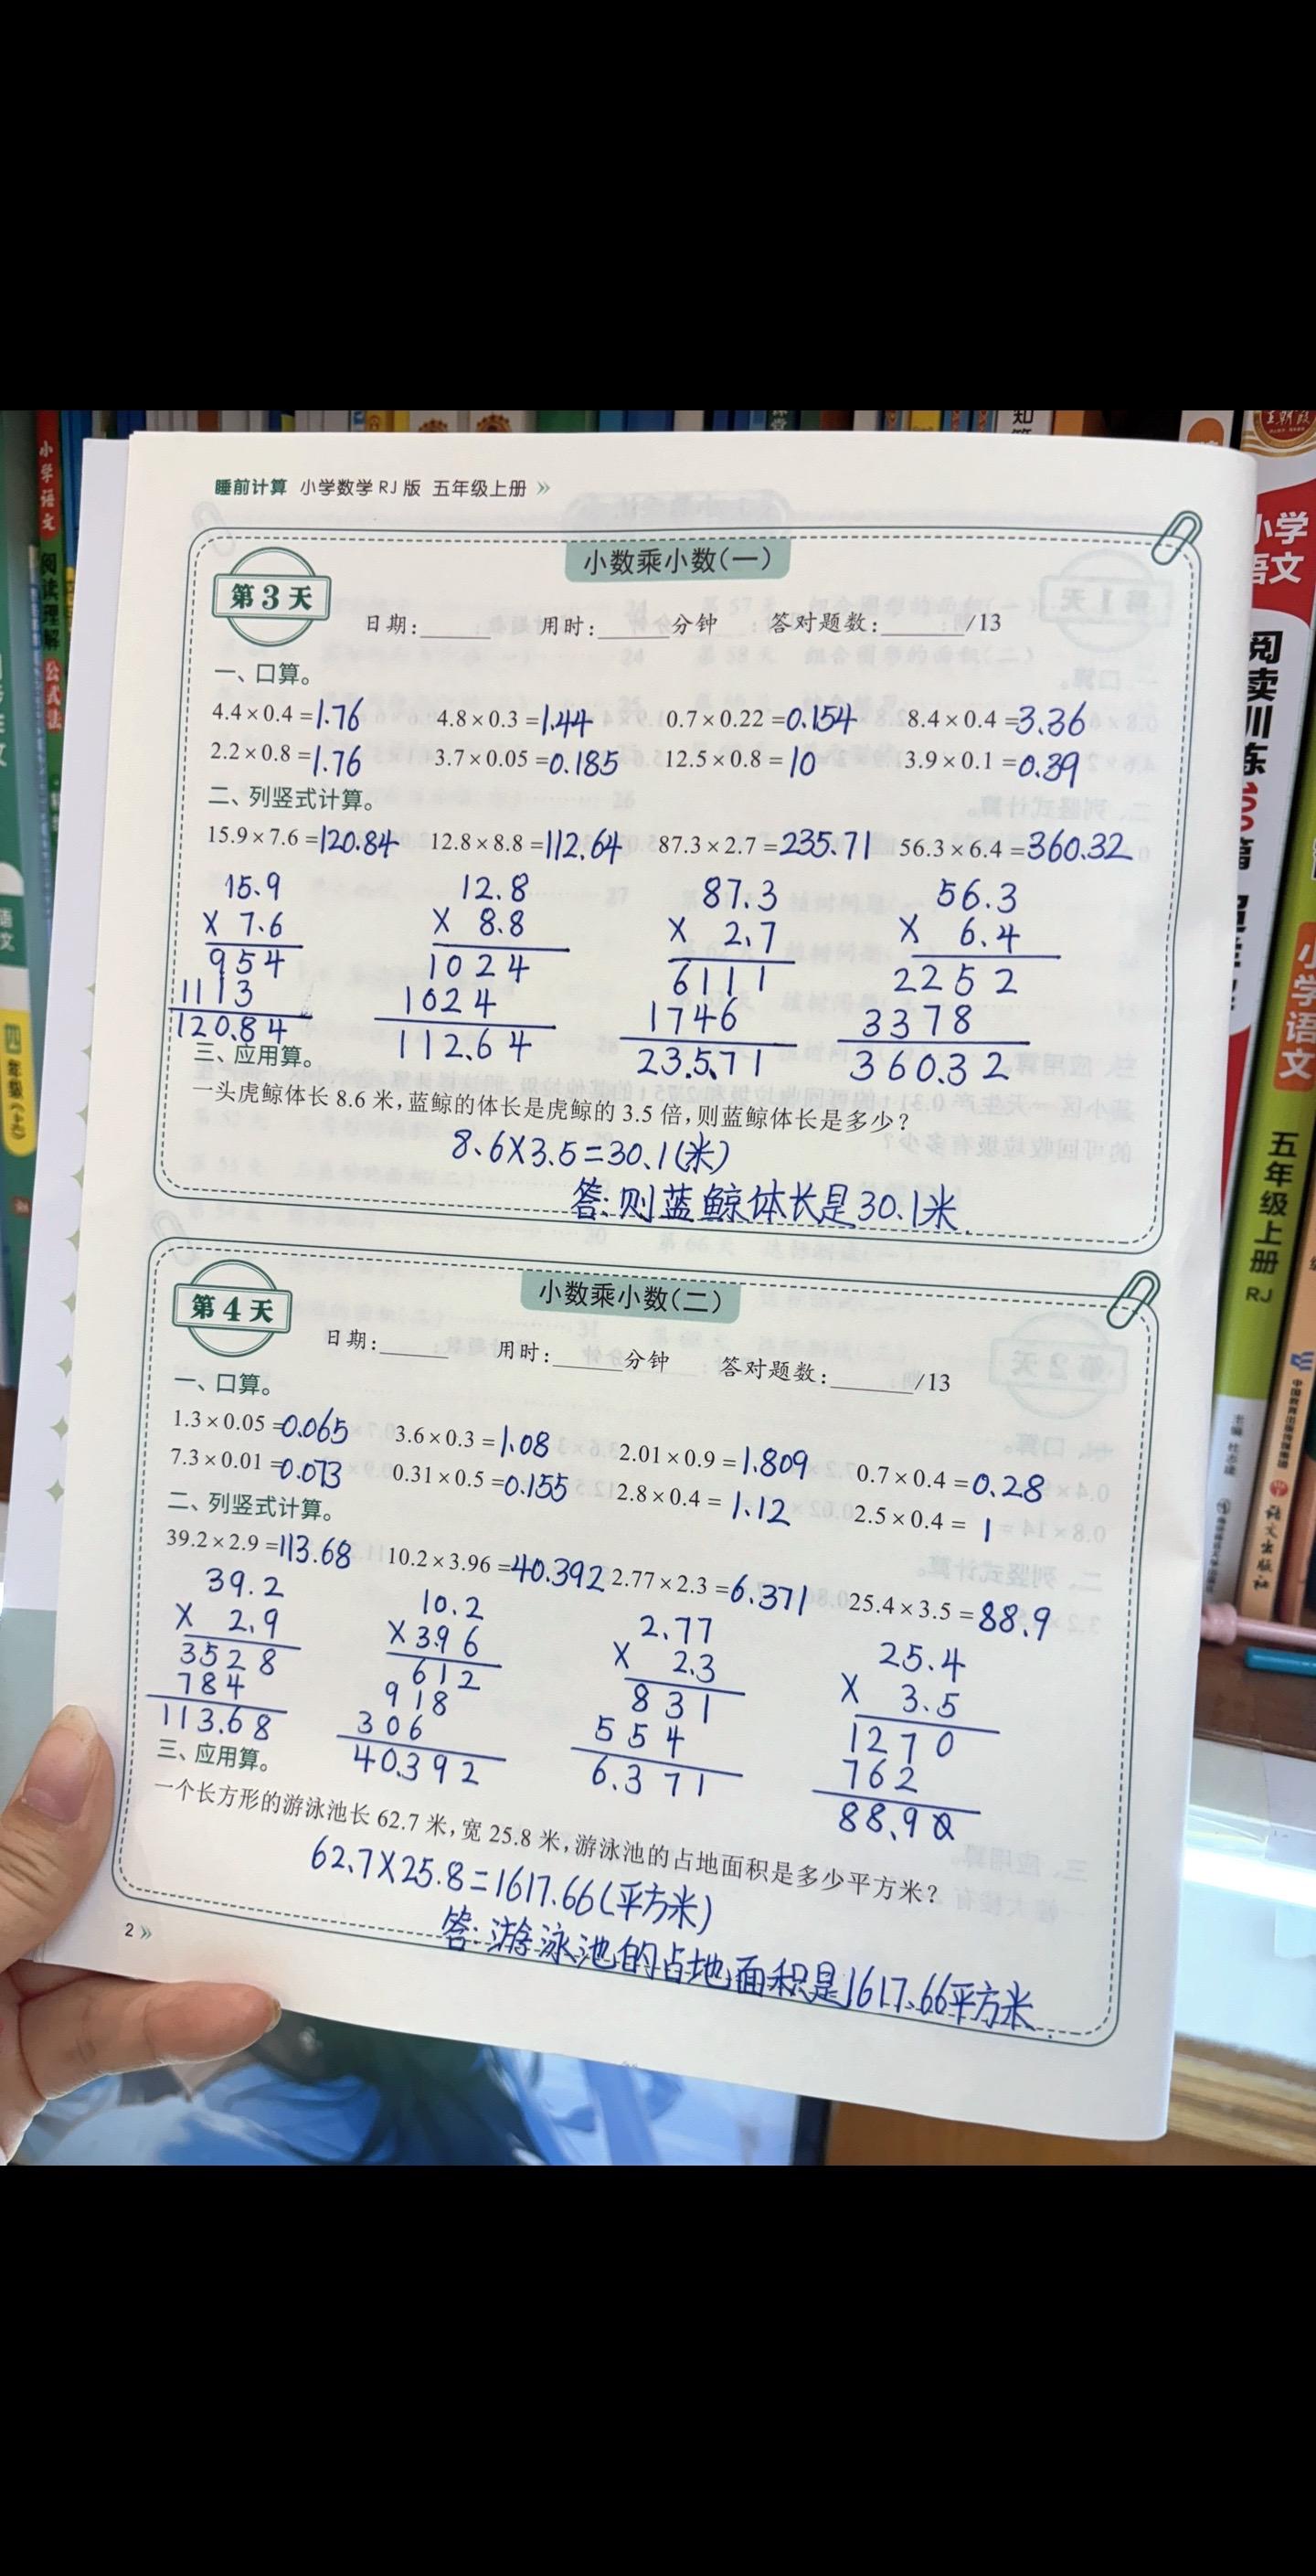 睡前计算 小学数学RJ版 五年级上册 »
小数乘小数(一)
第3天
日期:______ 用时:______分钟 答对题数:______/13
一、口算。
4.4×0.4=1.76 4.8×0.3=1.44 0.7×0.22=0.154 8.4×0.4=3.36
2.2×0.8=1.76 3.7×0.05=0.185 12.5×0.8=10 3.9×0.1=0.39
二、列竖式计算。
15.9×7.6=120.84 12.8×8.8=112.64 87.3×2.7=235.71 56.3×6.4=360.32
15.9 12.8 87.3 56.3
× 7.6 × 8.8 × 2.7 × 6.4
954 1024 6111 2252
1113 1024 1746 3378
120.84 112.64 235.71 360.32
三、应用算。
一头虎鲸体长8.6米,蓝鲸的体长是虎鲸的3.5倍,则蓝鲸体长是多少?
8.6×3.5=30.1(米)
答:则蓝鲸体长是30.1米.
小数乘小数(二)
第4天
日期:______ 用时:______分钟 答对题数:______/13
一、口算。
1.3×0.05=0.065 3.6×0.3=1.08 2.01×0.9=1.809 0.7×0.4=0.28
7.3×0.01=0.073 0.31×0.5=0.155 2.8×0.4=1.12 2.5×0.4=1
二、列竖式计算。
39.2×2.9=113.68 10.2×3.96=40.392 2.77×2.3=6.371 25.4×3.5=88.9
39.2 10.2 2.77 25.4
× 2.9 ×3.96 × 2.3 × 3.5
3528 612 831 1270
784 918 554 762
113.68 306 6.371 88.90
40.392
三、应用算。
一个长方形的游泳池长62.7米,宽25.8米,游泳池的占地面积是多少平方米?
62.7×25.8=1617.66(平方米)
答:游泳池的占地面积是1617.66平方米.
2 »
小学语文
阅读理解
公式法
小学
语文
阅读训练
小学语文
五年级上册
RJ
语文出版社
四年级(上)